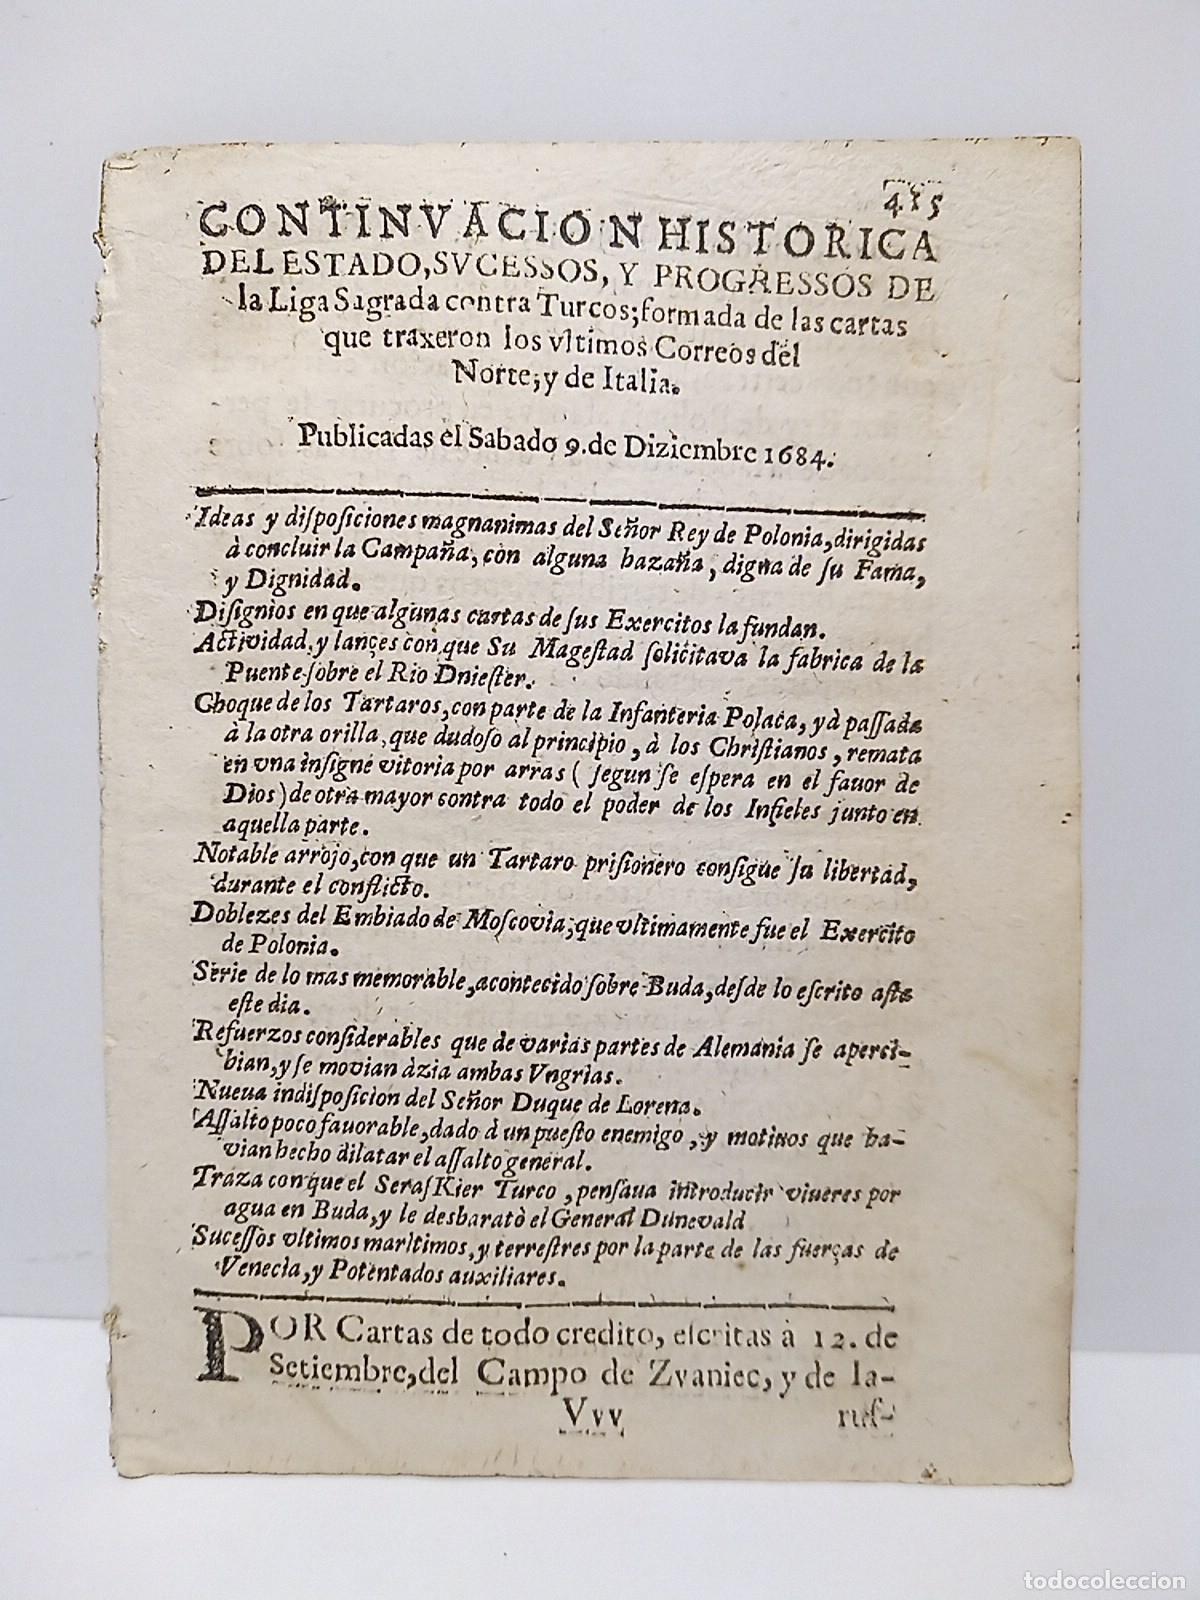 415
CONTINVACION HISTORICA
DEL ESTADO, SVCESSOS, Y PROGRESSOS DE
la Liga Sagrada contra Turcos; formada de las cartas
que traxeron los vltimos Correos del
Norte; y de Italia.
Publicadas el Sabado 9. de Diziembre 1684.
Ideas y disposiciones magnanimas del Señor Rey de Polonia, dirigidas
à concluir la Campaña, con alguna hazaña, digna de su Fama,
y Dignidad.
Disignios en que algunas cartas de sus Exercitos la fundan.
Actividad, y lançes con que Su Magestad solicitava la fabrica de la
Puente sobre el Rio Dniester.
Choque de los Tartaros, con parte de la Infanteria Polaca, yà passada
à la otra orilla, que dudoso al principio, à los Christianos, remata
en vna insigne vitoria por arras ( segun se espera en el favor de
Dios) de otra mayor contra todo el poder de los Infieles junto en
aquella parte.
Notable arrojo, con que un Tartaro prisionero consigue su libertad,
durante el conflicto.
Doblezes del Embiado de Moscovia; que vltimamente fue el Exercito
de Polonia.
Serie de lo mas memorable, acontecido sobre Buda, desde lo escrito asta
este dia.
Refuerzos considerables que de varias partes de Alemania se aperci-
bian, y se movian àzia ambas Vngrias.
Nueva indisposicion del Señor Duque de Lorena.
Assalto poco favorable, dado à un puesto enemigo, y motivos que ha-
vian hecho dilatar el assalto general.
Traza con que el SerasKier Turco, pensava introducir viveres por
agua en Buda, y le desbaratò el General Dunevald
Sucessos vltimos maritimos, y terrestres por la parte de las fuerças de
Venecia, y Potentados auxiliares.
POR Cartas de todo credito, escritas à 12. de
Setiembre, del Campo de Zvaniec, y de Ia-
Vvv rus-
todocoleccion